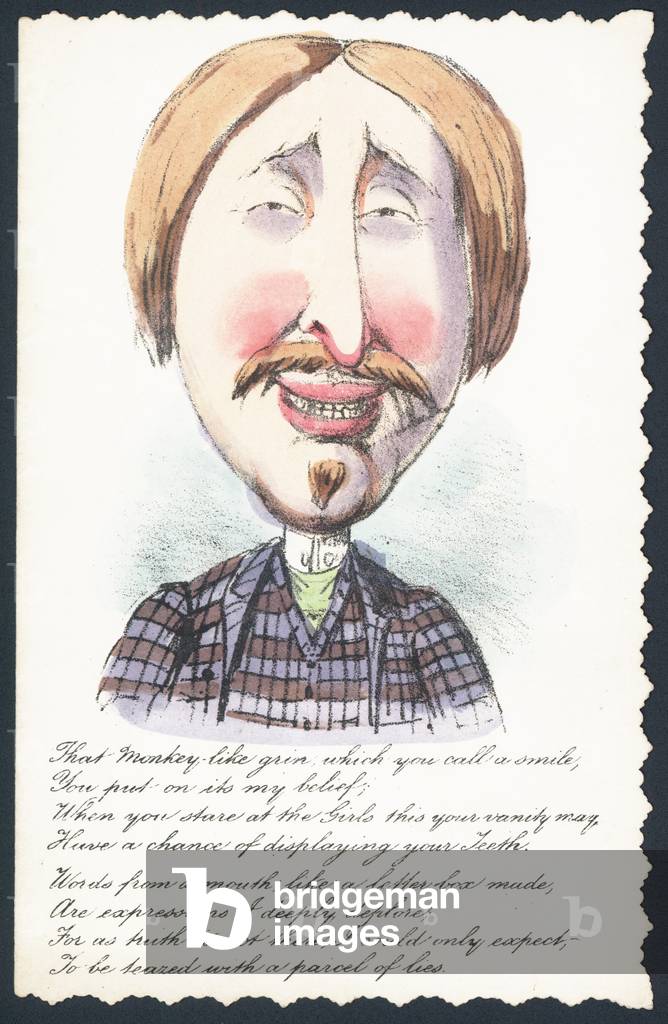 That Monkey-like grin, which you call a smile,
You put on its my belief;
When you stare at the Girls this your vanity may,
Have a chance of displaying your Teeth.
Words from a mouth like a letter-box made,
Are expressions I deeply deplore;
For as truth is not should only expect,-
To be teazed with a parcel of lies.
b
bridgeman
images